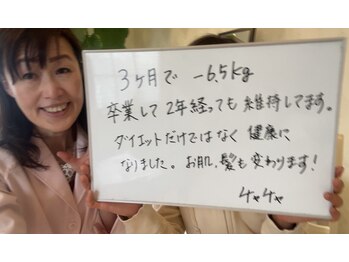 3ヶ月で −6.5kg
卒業して2年経っても維持してます。
ダイエットだけではなく 健康に
なりました。お肌、髪も変わります!
チャチャ